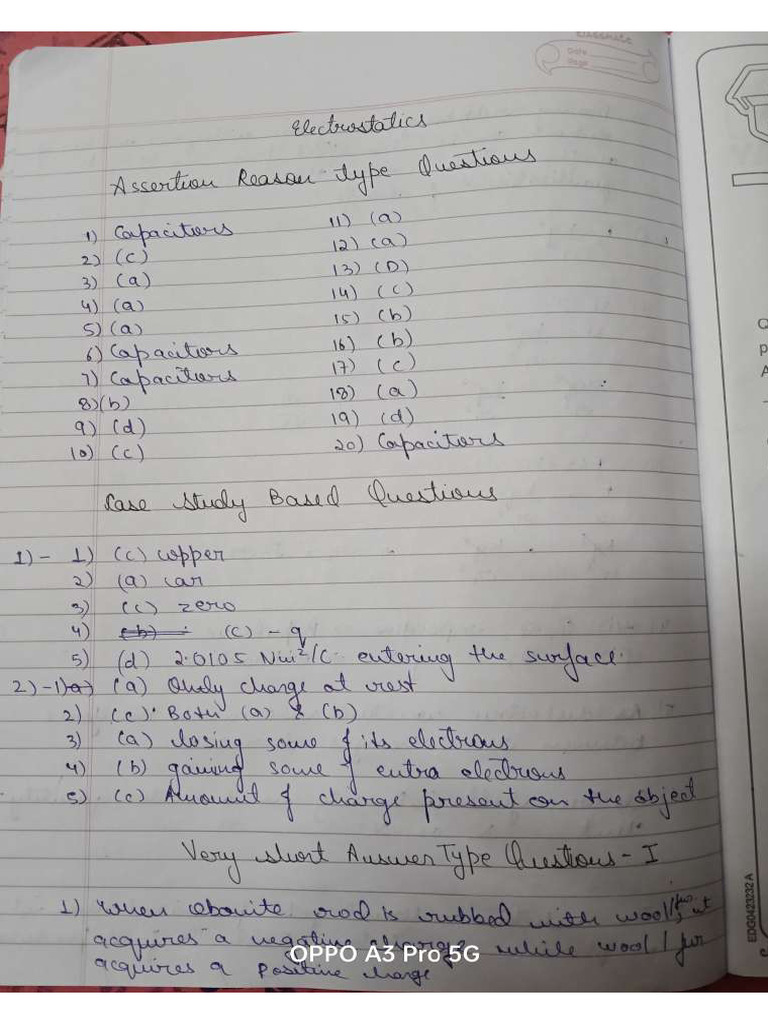 CLASSMATE
Date
Page
Electrostatics
Assertion Reason type Questions
1) Capacitors
2) (c)
3) (a)
4) (a)
5) (a)
6) Capacitors
7) Capacitors
8) (b)
9) (d)
10) (c)
11) (a)
12) (a)
13) (D)
14) (c)
15) (b)
16) (b)
17) (c)
18) (a)
19) (d)
20) Capacitors
Case Study Based Questions
1) - 1) (c) copper
2) (a) car
3) (c) zero
4) (b) (C) - q
5) (d) 2.0105 Nm²/C entering the surface.
2) - 1) a) (a) Only charge at rest
2) (c) Both (a) & (b)
3) (a) losing some of its electrons
4) (b) gaining some of extra electrons
5) (c) Amount of charge present on the object
Very short Answer Type Questions - I
1) When ebonite rod is rubbed with wool/fur, it
acquires a negative charge while wool / fur
acquires a positive charge
OPPO A3 Pro 5G
EDG0423232A